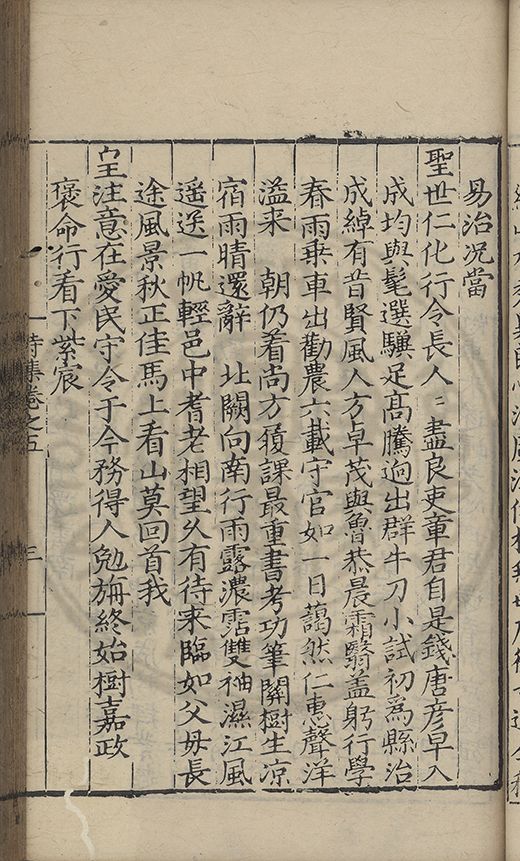 易治况當
聖世仁化行令長人〻盡良吏董君自是錢唐彦早入
成均與髦選驥足髙騰逈出群牛刀小試初爲縣治
成綽有昔賢風人方卓茂與魯恭晨霜翳盖躬行學
春雨乗車出勸農六載守官如一日藹然仁惠聲洋
溢来 朝仍着尚方履課最重書考功筆闕樹生凉
宿雨晴還辭 北闕向南行雨露濃霑雙袖濕江風
遥送一帆輕邑中耆老相望久有待来臨如父母長
途風景秋正佳馬上看山莫回首我
皇注意在愛民守令于今務得人勉旃終始樹嘉政
褒命行看下紫宸
詩集卷之五
三